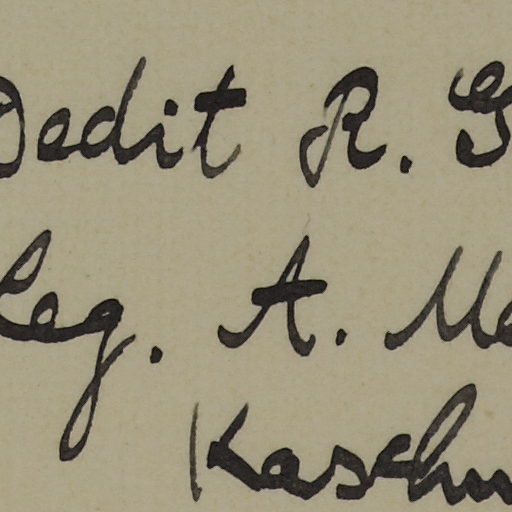 Dedit R. G
Leg. A. Me
Kaschm